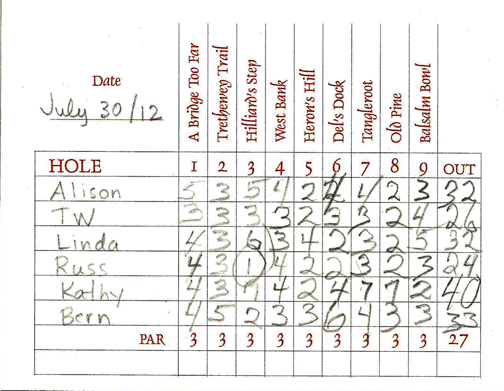 Date
July 30/12
A Bridge Too Far
Trethewey Trail
Hilliard's Step
West Bank
Heron's Hill
Del's Dock
Tangleroot
Old Pine
Balsalm Bowl
HOLE 1 2 3 4 5 6 7 8 9 OUT
Alison 5 3 5 4 2 4 4 2 3 32
TW 3 3 3 3 2 3 3 2 4 26
Linda 4 3 6 3 4 2 3 2 5 32
Russ 4 3 1 4 2 2 3 2 3 24
Kathy 4 3 7 4 2 4 7 7 2 40
Bern 4 5 2 3 3 6 4 3 3 33
PAR 3 3 3 3 3 3 3 3 3 27